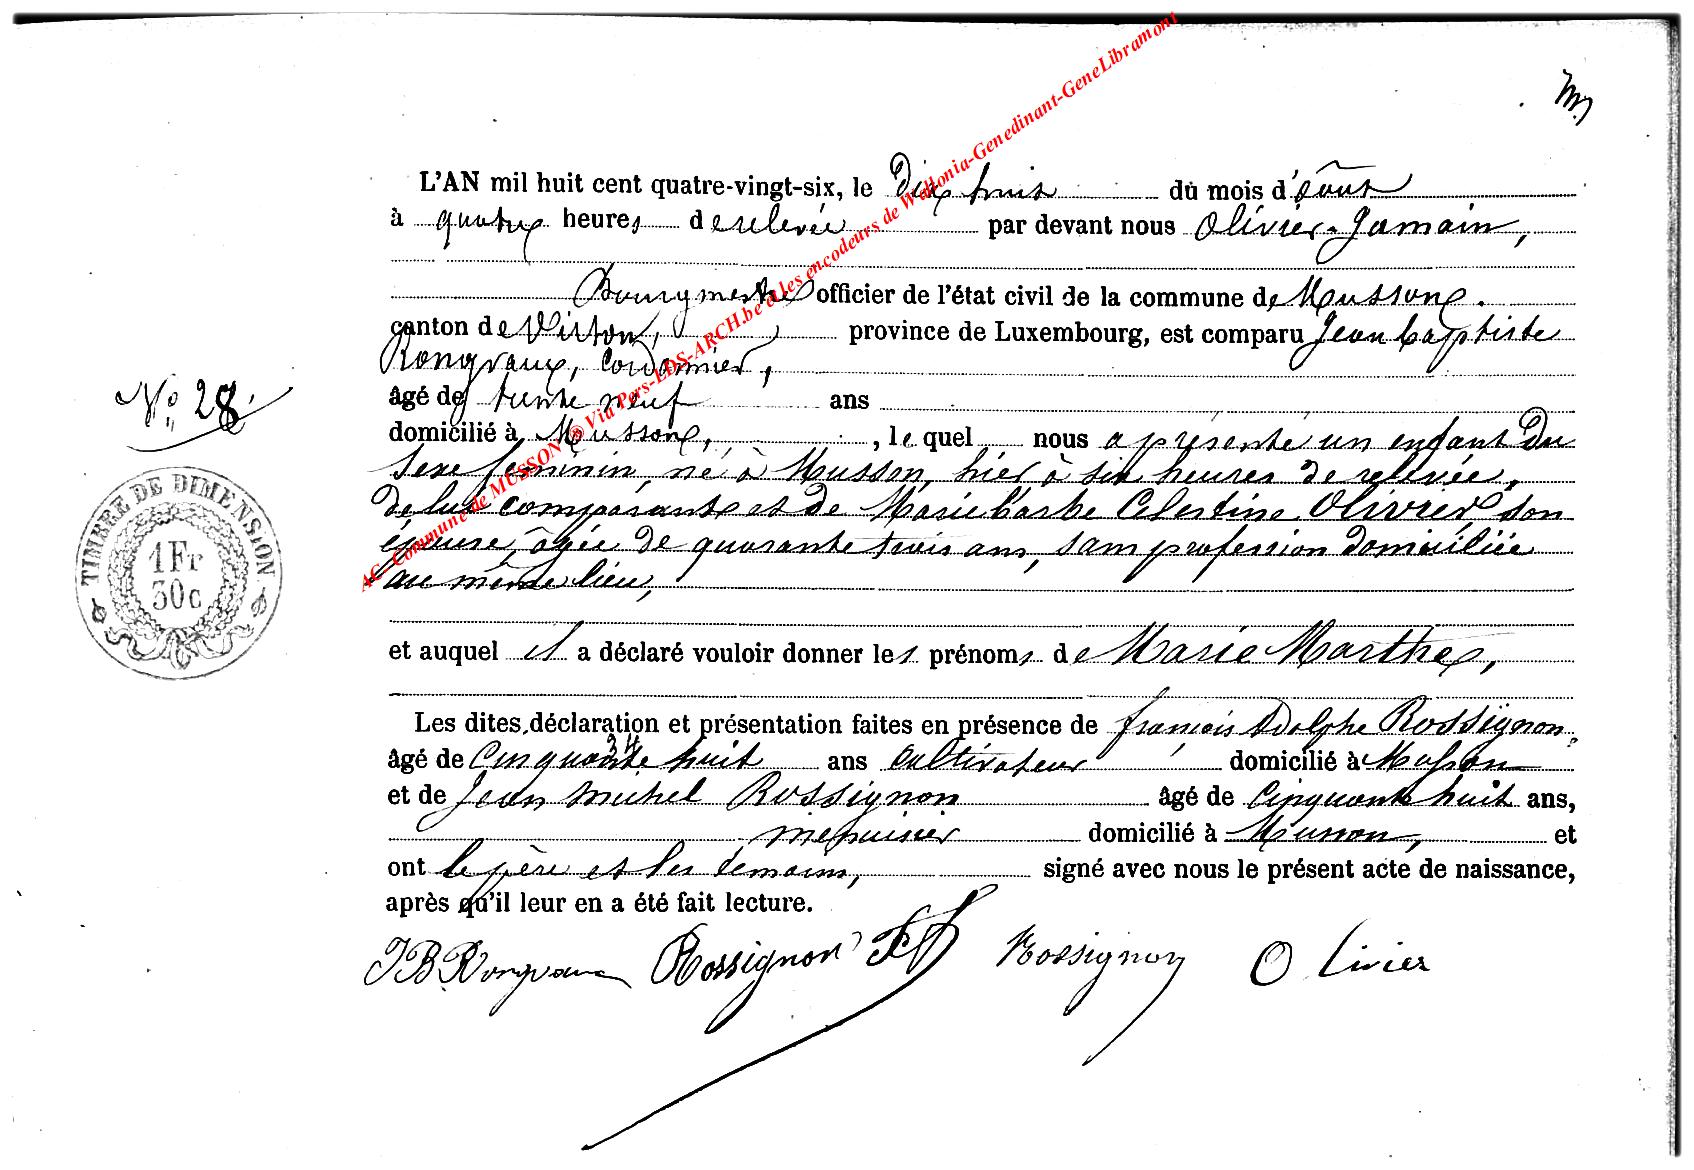 L'AN mil huit cent quatre-vingt-six, le Dix huit du mois d'Août
à quatre heures de relevée par devant nous Olivier-Jamain,
Bourgmestre officier de l'état civil de la commune de Musson.
canton de Virton, province de Luxembourg, est comparu Jean baptiste
Rongvaux, cordonnier,
âgé de trente neuf ans
N° 28
domicilié à Musson, , lequel nous a présenté un enfant du
sexe féminin, né à Musson, hier à six heures de relevée,
de lui comparant et de Marie barbe Celestine Olivier son
épouse, âgée de quarante trois ans, sans profession domiciliée
au même lieu,
TIMBRE DE DIMENSION
1 Fr
30 c
et auquel il a déclaré vouloir donner les prénoms de Marie Marthe,
Les dites déclaration et présentation faites en présence de françois Adolphe Rossignon,
âgé de Cinquante huit ans cultivateur domicilié à Musson
34
et de Jean Michel Rossignon âgé de Cinquante huit ans,
menuisier domicilié à Musson, et
ont le père et les témoins, signé avec nous le présent acte de naissance,
après qu'il leur en a été fait lecture.
JB Rongvaux Rossignon Rossignon Olivier
AC_Commune de MUSSON ® Via Pers-LDS-ARCH.be et les encodeurs de Wallonia-Genedinant-GeneLibramont